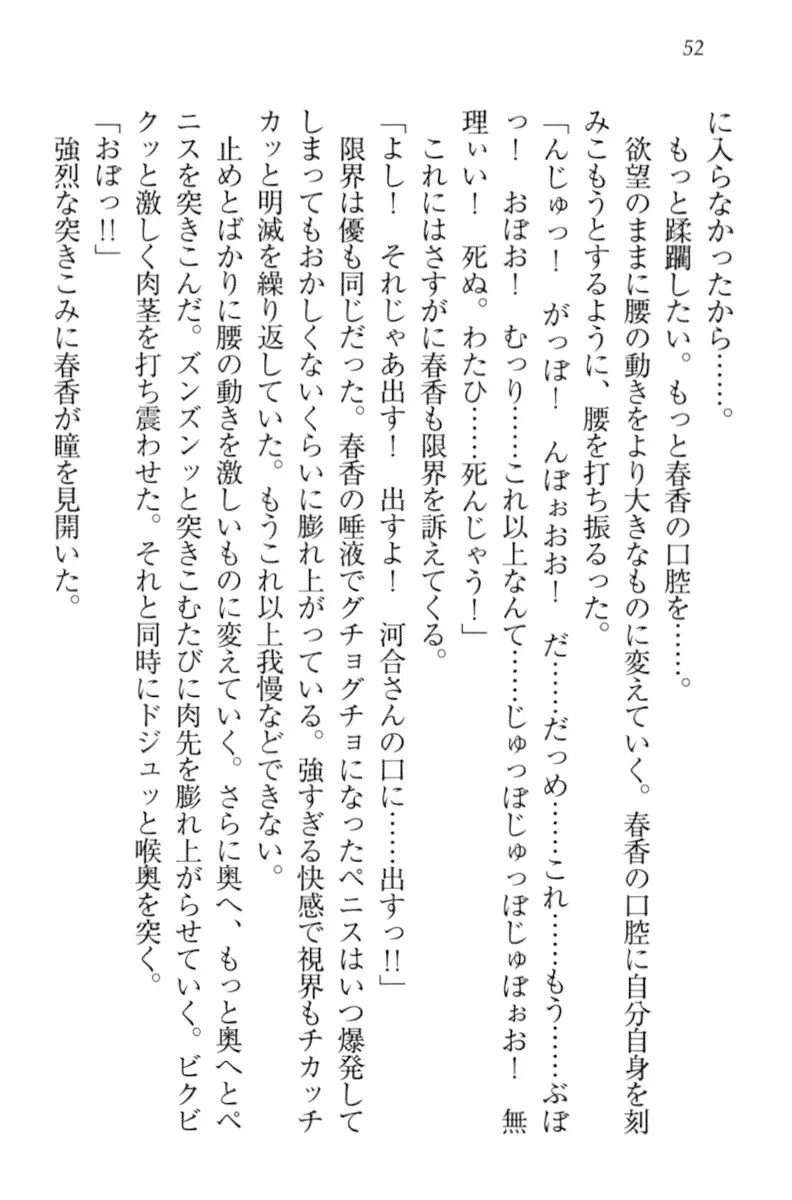 52
に入らなかったから……。
もっと蹂躙したい。もっと春香の口腔を……。
欲望のままに腰の動きをより大きなものに変えていく。春香の口腔に自分自身を刻
みこもうとするように、腰を打ち振るった。
「んじゅっ！　がっぽ！　んぼぉおお！　だ……だっめ……これ……もう……ぶぼ
っ！　おぼお！　むっり……これ以上なんて……じゅっぽじゅっぽじゅぽぉお！　無
理ぃい！　死ぬ。わたひ……死んじゃう！」
これにはさすがに春香も限界を訴えてくる。
「よし！　それじゃあ出す！　出すよ！　河合さんの口に……出すっ!!」
限界は優も同じだった。春香の唾液でグチョグチョになったペニスはいつ爆発して
しまってもおかしくないくらいに膨れ上がっている。強すぎる快感で視界もチカッチ
カッと明滅を繰り返していた。もうこれ以上我慢などできない。
止めとばかりに腰の動きを激しいものに変えていく。さらに奥へ、もっと奥へとペ
ニスを突きこんだ。ズンズンッと突きこむたびに肉先を膨れ上がらせていく。ビクビ
クッと激しく肉茎を打ち震わせた。それと同時にドジュッと喉奥を突く。
「おぼっ!!」
強烈な突きこみに春香が瞳を見開いた。